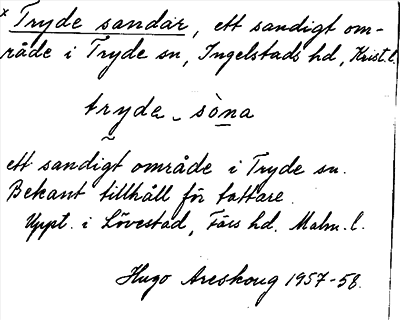 x Tryde sandar, ett sandigt om-
råde i Tryde sn, Ingelstads hd, Krist.l.
tryde - sòna
ett sandigt område i Tryde sn.
Bekant tillhåll för tattare.
Uppt. i Lövestad, Färs hd. Malm. l.
Hugo Areskoug 1957-58.